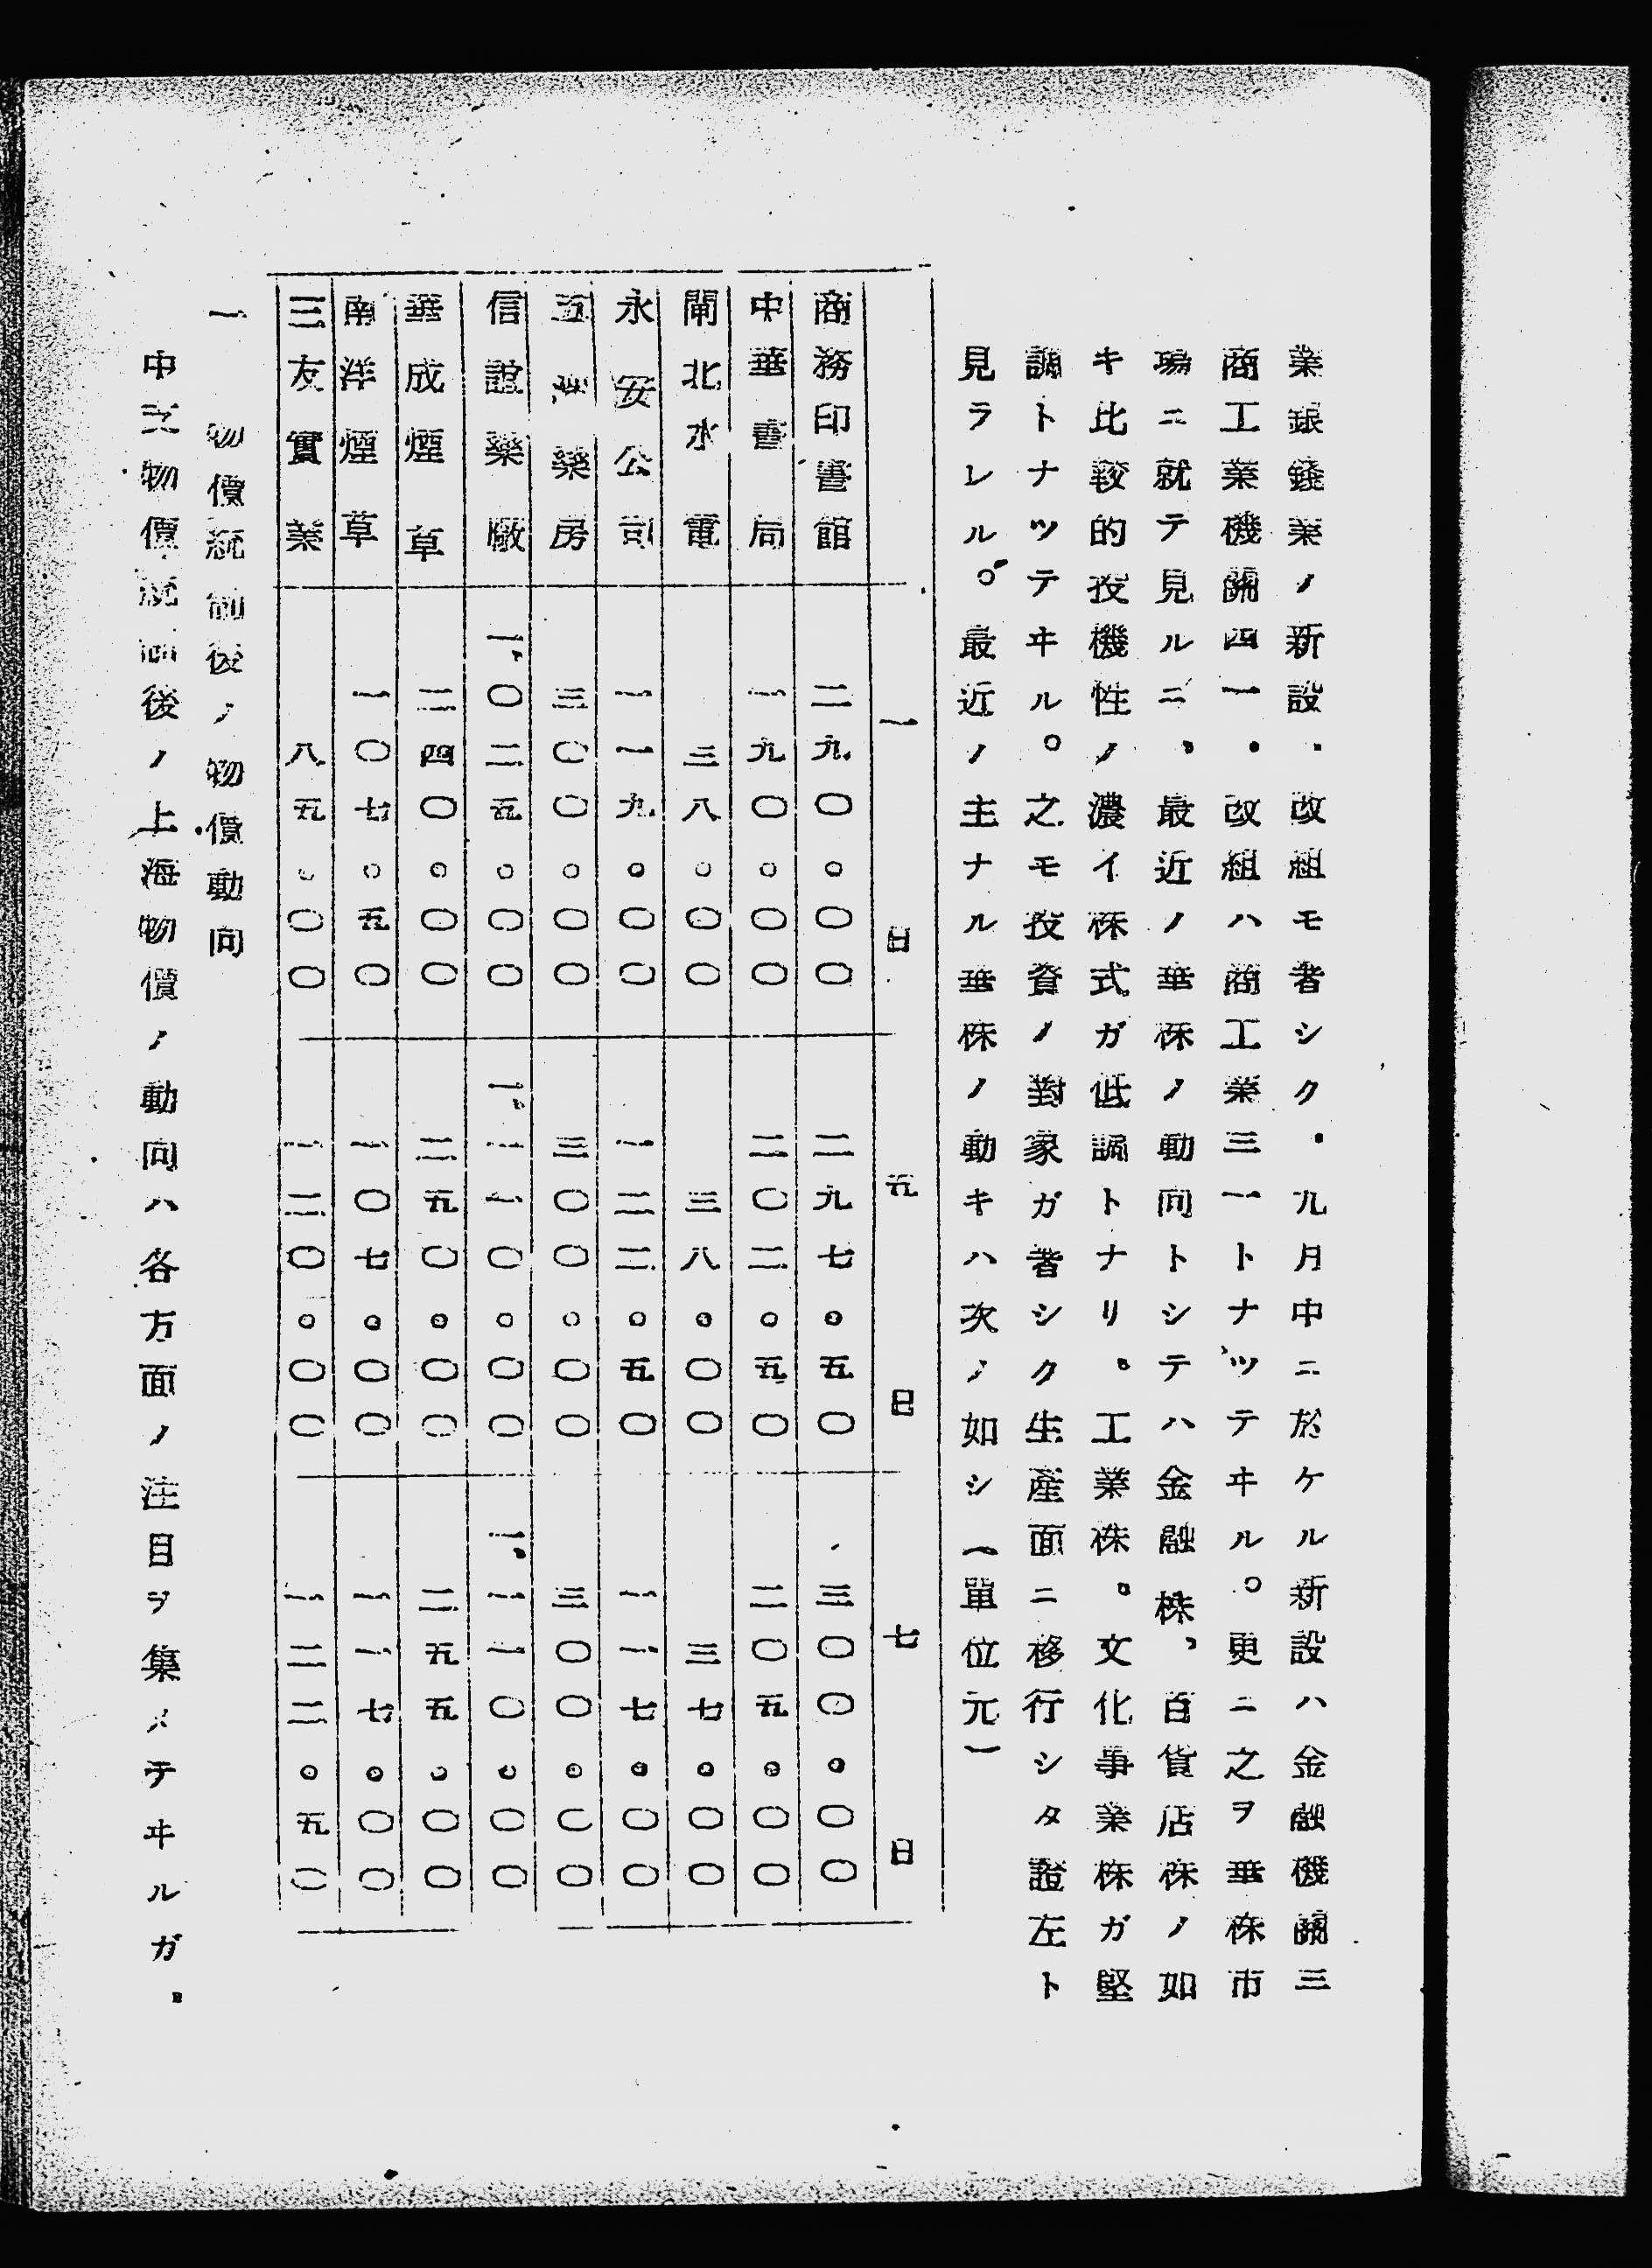 業銀錢業ノ新設・改組モ著シク・九月中ニ於ケル新設ハ金融機關三
商工業機關四一・改組ハ商工業三一トナツテヰル。更ニ之ヲ華株市
場ニ就テ見ルニ、最近ノ華株ノ動向トシテハ金融株、百貨店株ノ如
キ比較的投機性ノ濃イ株式ガ低調トナリ。工業株。文化事業株ガ堅
調トナツテヰル。之モ投資ノ對象ガ著シク生産面ニ移行シタ證左ト
見ラレル。最近ノ主ナル華株ノ動キハ次ノ如シ(單位元)
一日 五日 七日
商務印書館 二九〇。〇〇 二九七。五〇 三〇〇。〇〇
中華書局 一九〇。〇〇 二〇二。五〇 二〇五。〇〇
閘北水電 三八。〇〇 三八。〇〇 三七。〇〇
永安公司 一一九。〇〇 一二二。五〇 一一七。〇〇
五洲藥房 三〇〇。〇〇 三〇〇。〇〇 三〇〇。〇〇
信誼藥廠 一、〇二五。〇〇 一、一一〇。〇〇 一、一一〇。〇〇
華成煙草 二四〇。〇〇 二五〇。〇〇 二五五。〇〇
南洋煙草 一〇七。五〇 一〇七。〇〇 一一七。〇〇
三友實業 八五。〇〇 一二〇。〇〇 一二二。五〇
一 物價統制後ノ物價動向
中支物價統制後ノ上海物價ノ動向ハ各方面ノ注目ヲ集メテヰルガ、